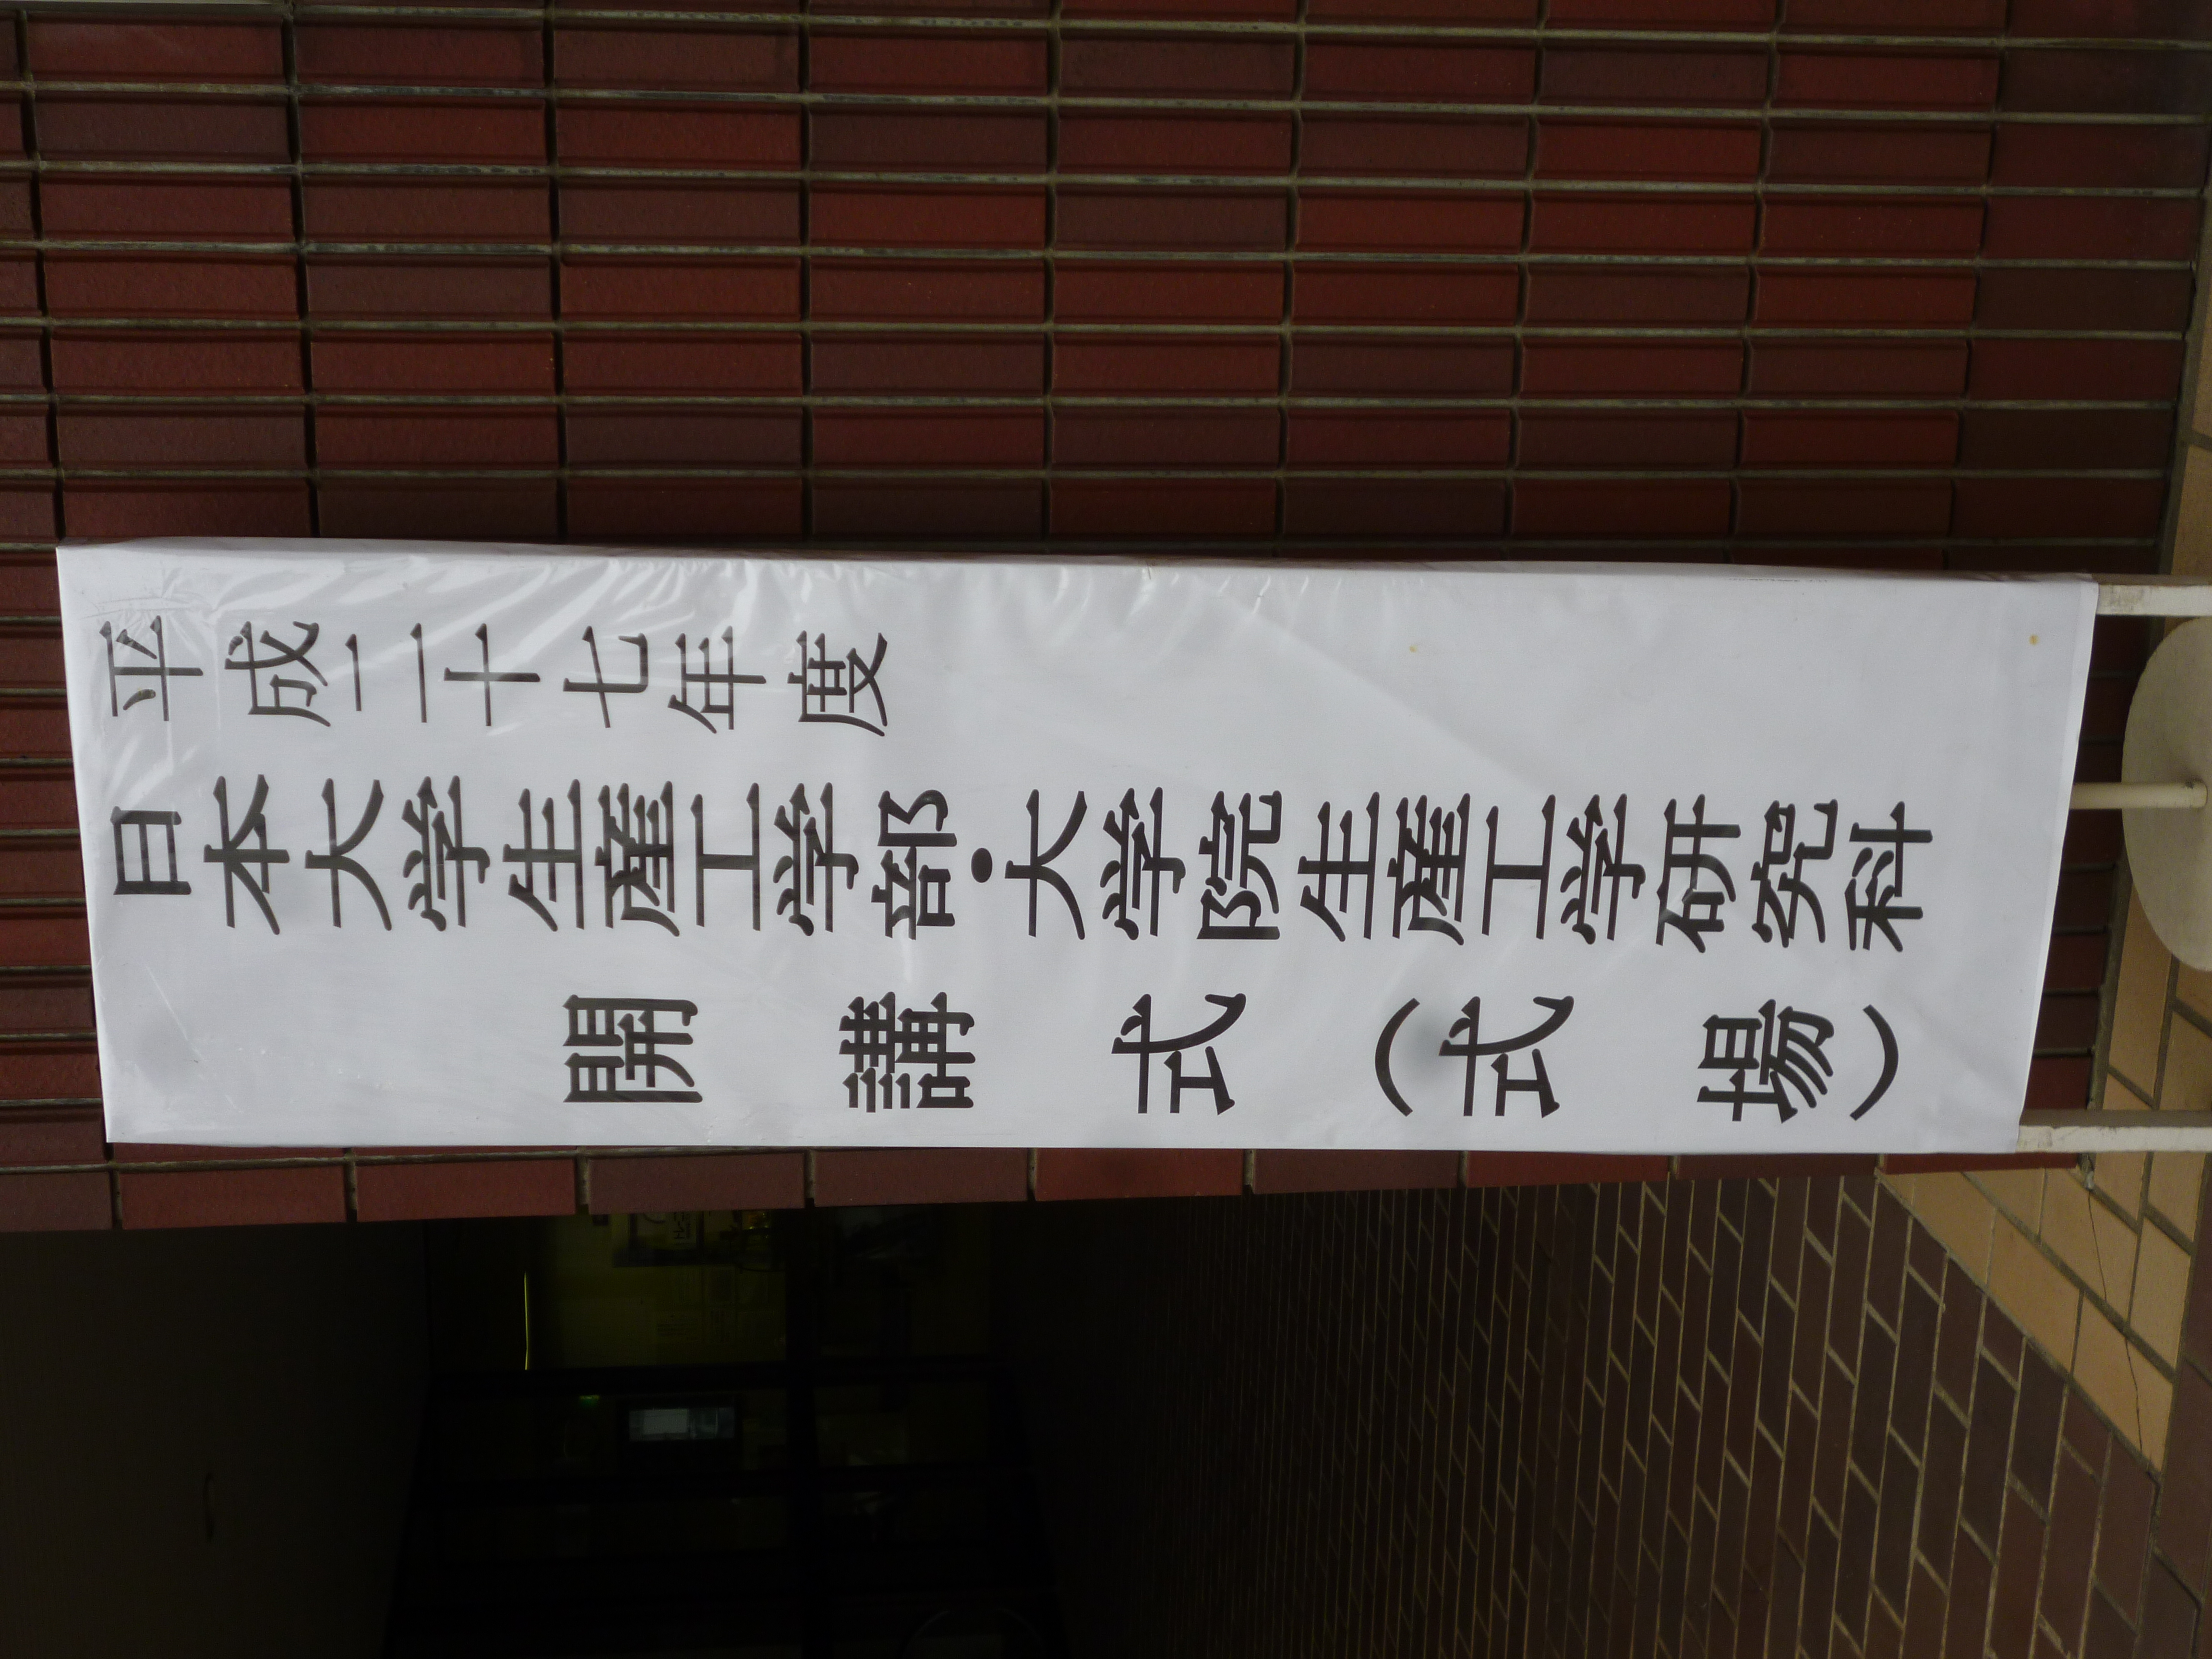 平成二十七年度
日本大学生産工学部・大学院生産工学研究科
開講式（式場）